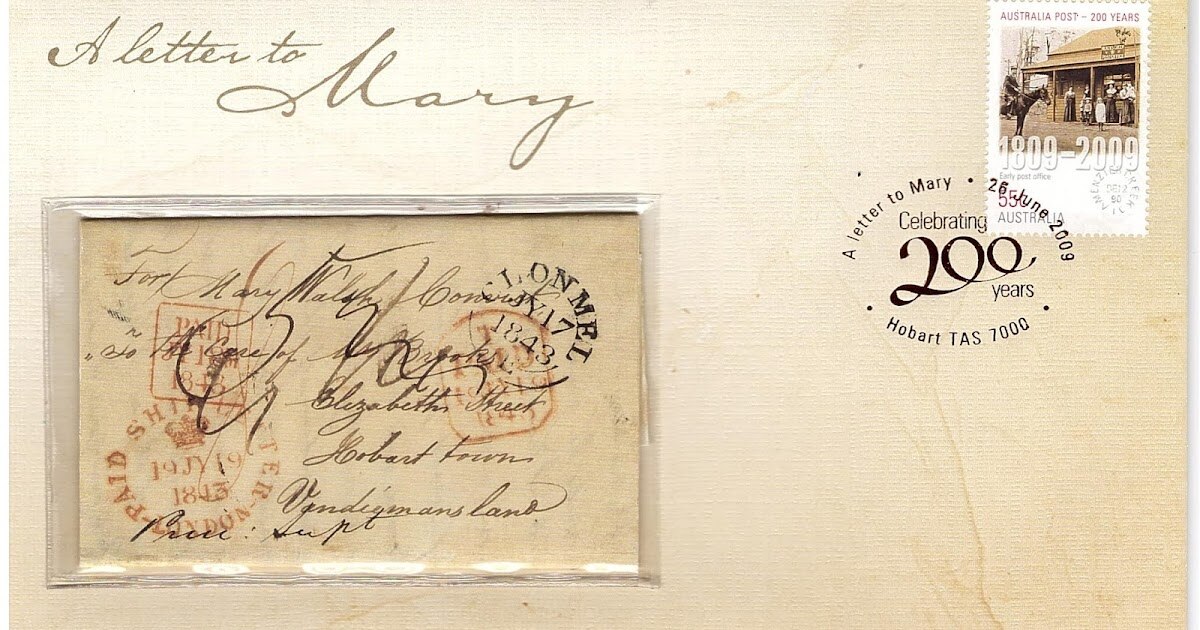 A letter to
Mary
AUSTRALIA POST - 200 YEARS
1809-2009
Early post office
55c
AUSTRALIA
DE12
90
A letter to Mary • 26 June 2009
Celebrating
200
years
• Hobart TAS 7000 •
For Mary Walsh Convict
To the Care of Mr Brooks
Elizabeth Street
Hobart town
Vandiemansland
Prin: Supt
CLONMEL
JY 17
1843
PAID
1843
PAID SHIP LETTER-LONDON
19 JY 19
1843
PAID